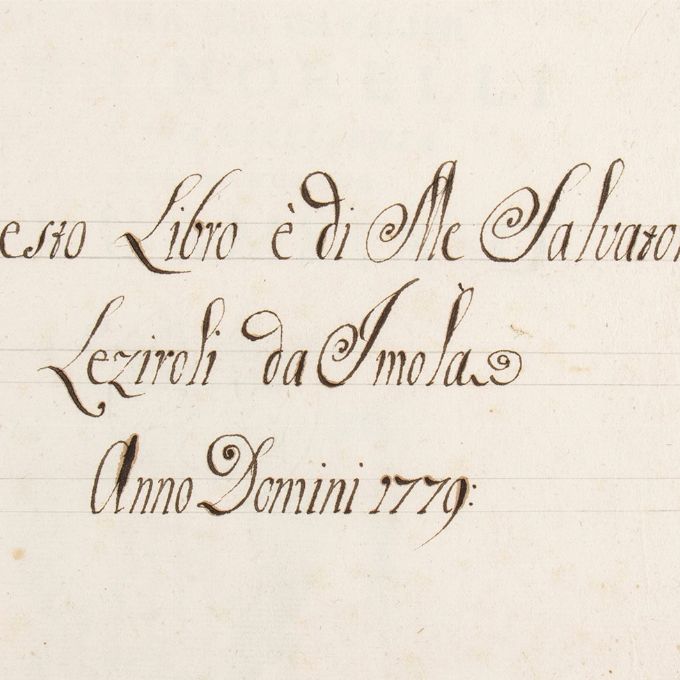 esto Libro è di Me Salvator
Leziroli da Imola
Anno Domini 1779: